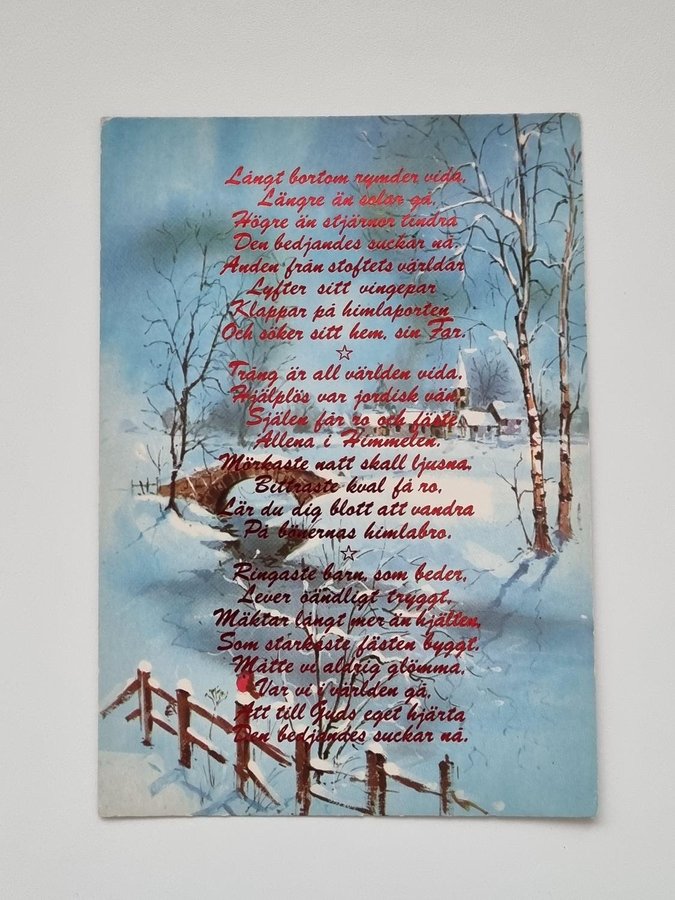 Långt bortom rymder vida,
Längre än solar gå,
Högre än stjärnor tindra
Den bedjandes suckar nå.
Anden från stoftets världar
Lyfter sitt vingepar
Klappar på himlaporten
Och söker sitt hem, sin Far.
Trång är all världen vida,
Hjälplös var jordisk vän
Själen får ro och fäste
Allena i Himmelen.
Mörkaste natt skall ljusna,
Bittraste kval få ro,
Lär du dig blott att vandra
På bönernas himlabro.
Ringaste barn, som beder,
Lever oändligt tryggt,
Mäktar långt mer än hjälten,
Som starkaste fästen byggt.
Måtte vi aldrig glömma,
Var vi i världen gå,
Att till Guds eget hjärta
Den bedjandes suckar nå.